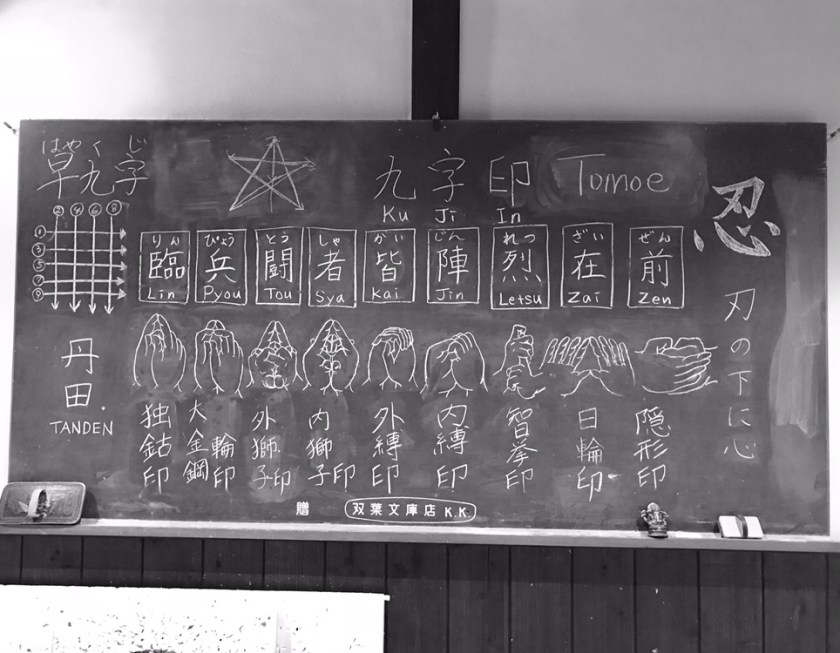 はやく じ
早九字
② ④ ⑥ ⑧
①
③
⑤
⑦
⑨
丹田.
TANDEN
九字印 Tomoe
Ku Ji In
りん ぴょう とう しゃ かい じん れつ ざい ぜん
臨 兵 闘 者 皆 陣 烈 在 前
Lin Pyou Tou Sya Kai Jin Letsu Zai Zen
独鈷印
大金鋼輪印
外獅子印
内獅子印
外縛印
内縛印
智拳印
日輪印
隠形印
忍
刃の下に心
贈 双葉文庫店 K.K.